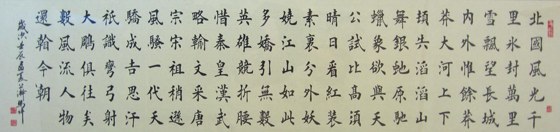 北國風光千
里冰封萬里
雪飄望長城
內外惟餘莽
莽大河上下
頓失滔滔山
舞銀蛇原馳
蠟象欲與天
公試比高須
晴日看紅裝
素裹分外妖
嬈江山如此
多嬌引無數
英雄競折腰
惜秦皇漢武
略輸文采唐
宗宋祖稍遜
風騷一代天
驕成吉思汗
祇識彎弓射
大鵰俱往矣
數風流人物
還看今朝
壬辰